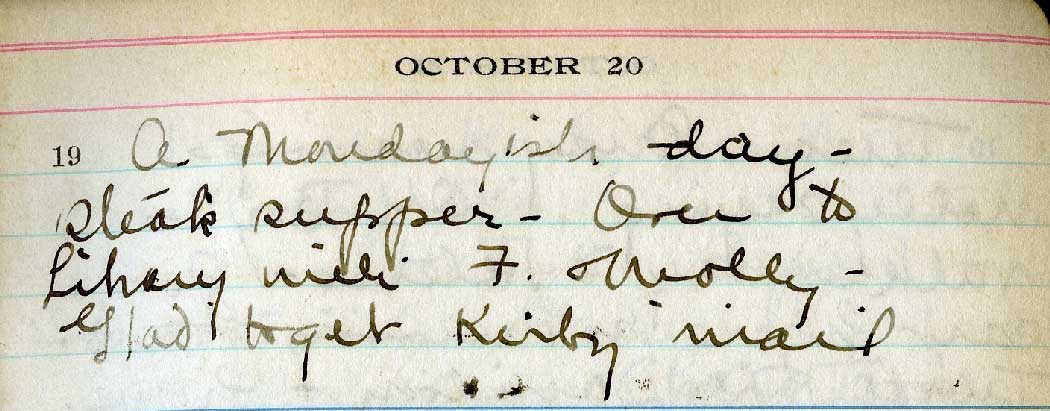 OCTOBER 20
19 A Mondayish day -
steak supper - Over to
Library with F. & Molly -
Glad to get Kirby mail